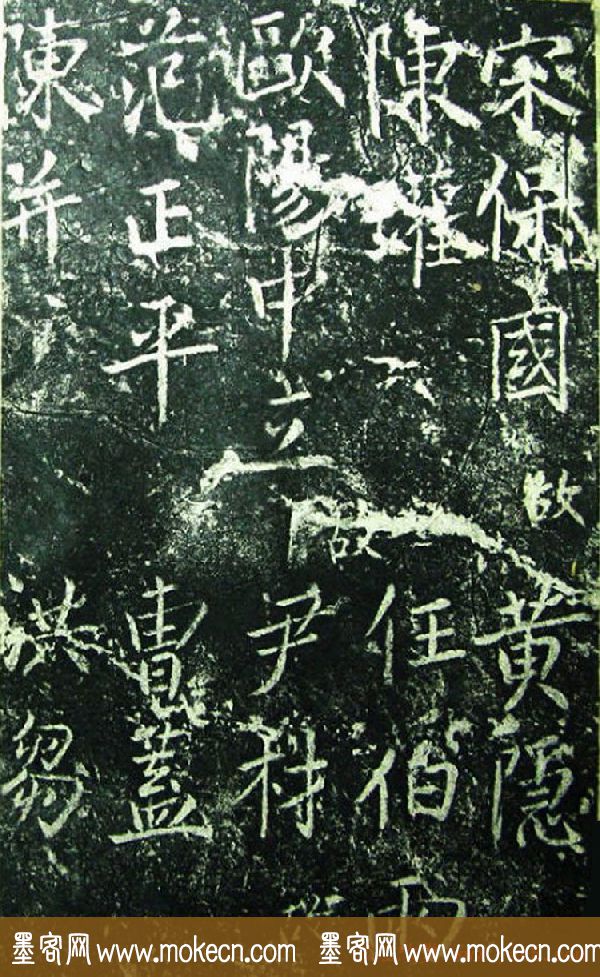 宋保國 故 黄隱
陳瓘 任伯雨
歐陽中立 故 尹材
范正平 曹蓋
陳并 洪芻
墨客网 www.mokecn.com 墨客网 www.mokecn.com